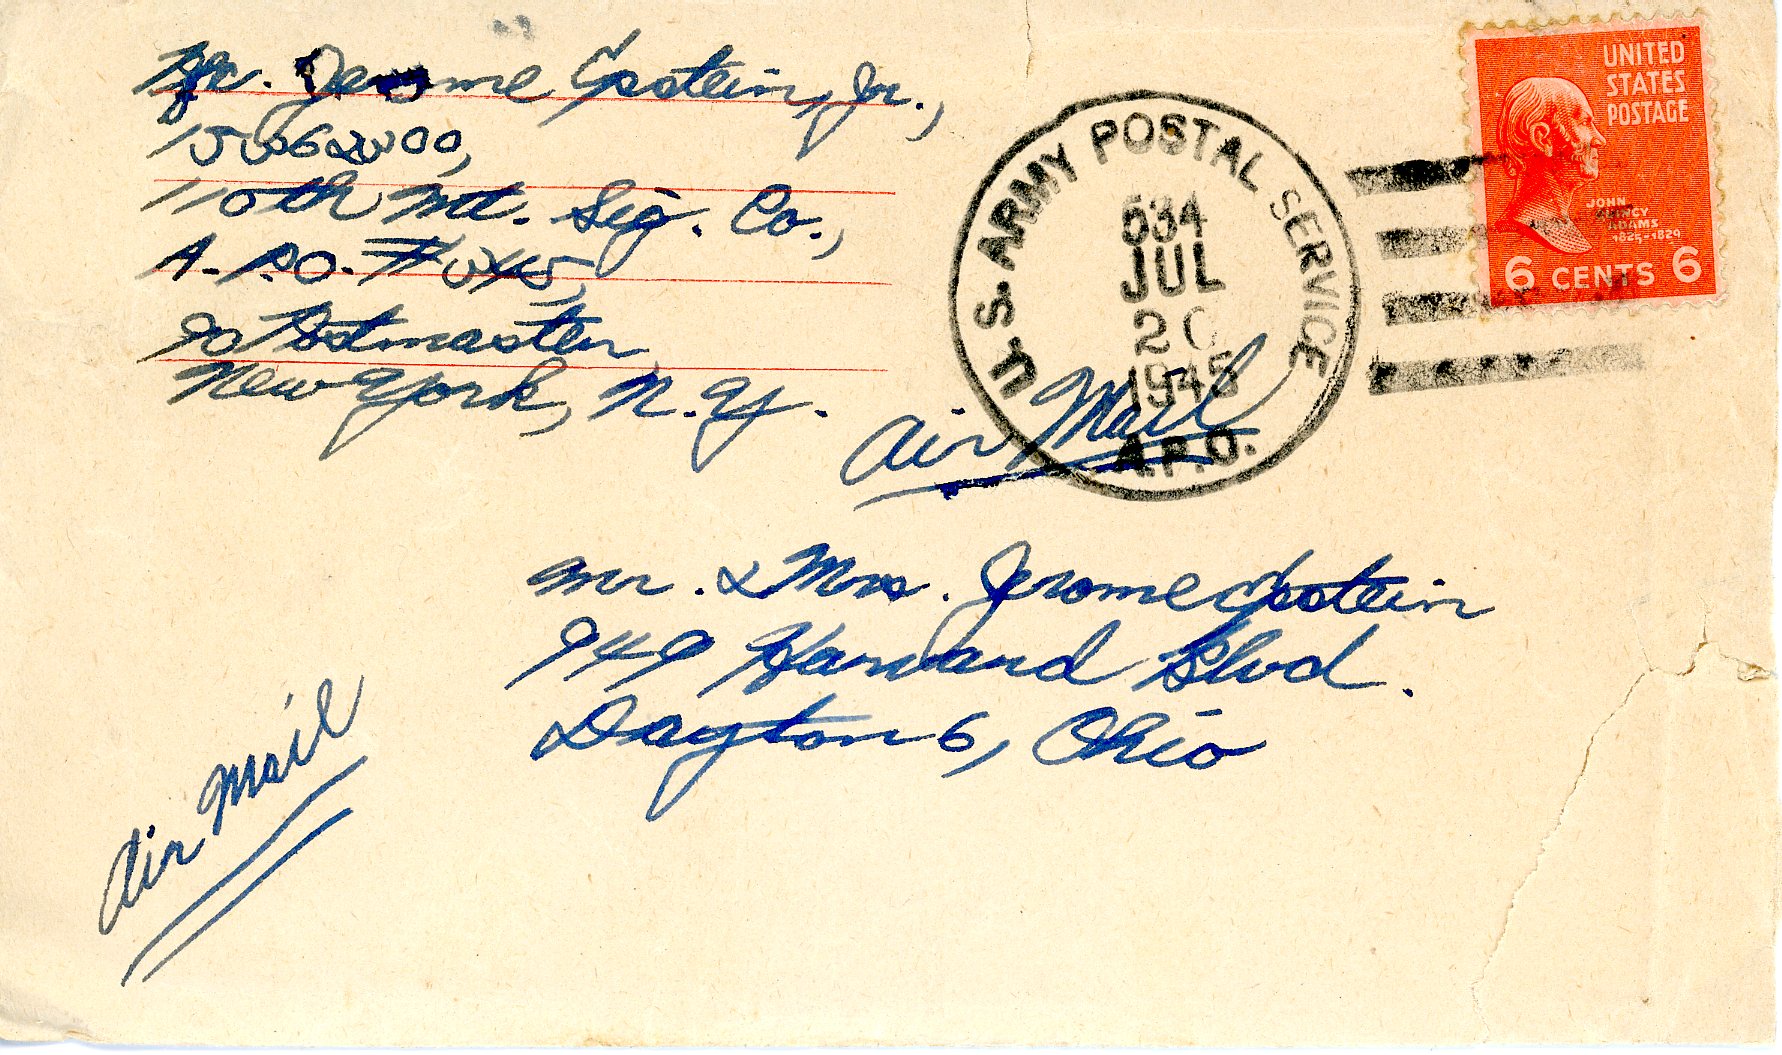 Pfc. Jerome Epstein, Jr.,
110th Mt. Sig. Co.,
A.P.O. #345,
c/o Postmaster
New York, N.Y.
U.S. ARMY POSTAL SERVICE
JUL
20
1945
A.P.O.
UNITED
STATES
POSTAGE
JOHN
QUINCY
ADAMS
1825-1829
6 CENTS 6
Air Mail
Mr. & Mrs. Jerome Epstein
949 Harvard Blvd.
Dayton 6, Ohio
Air Mail